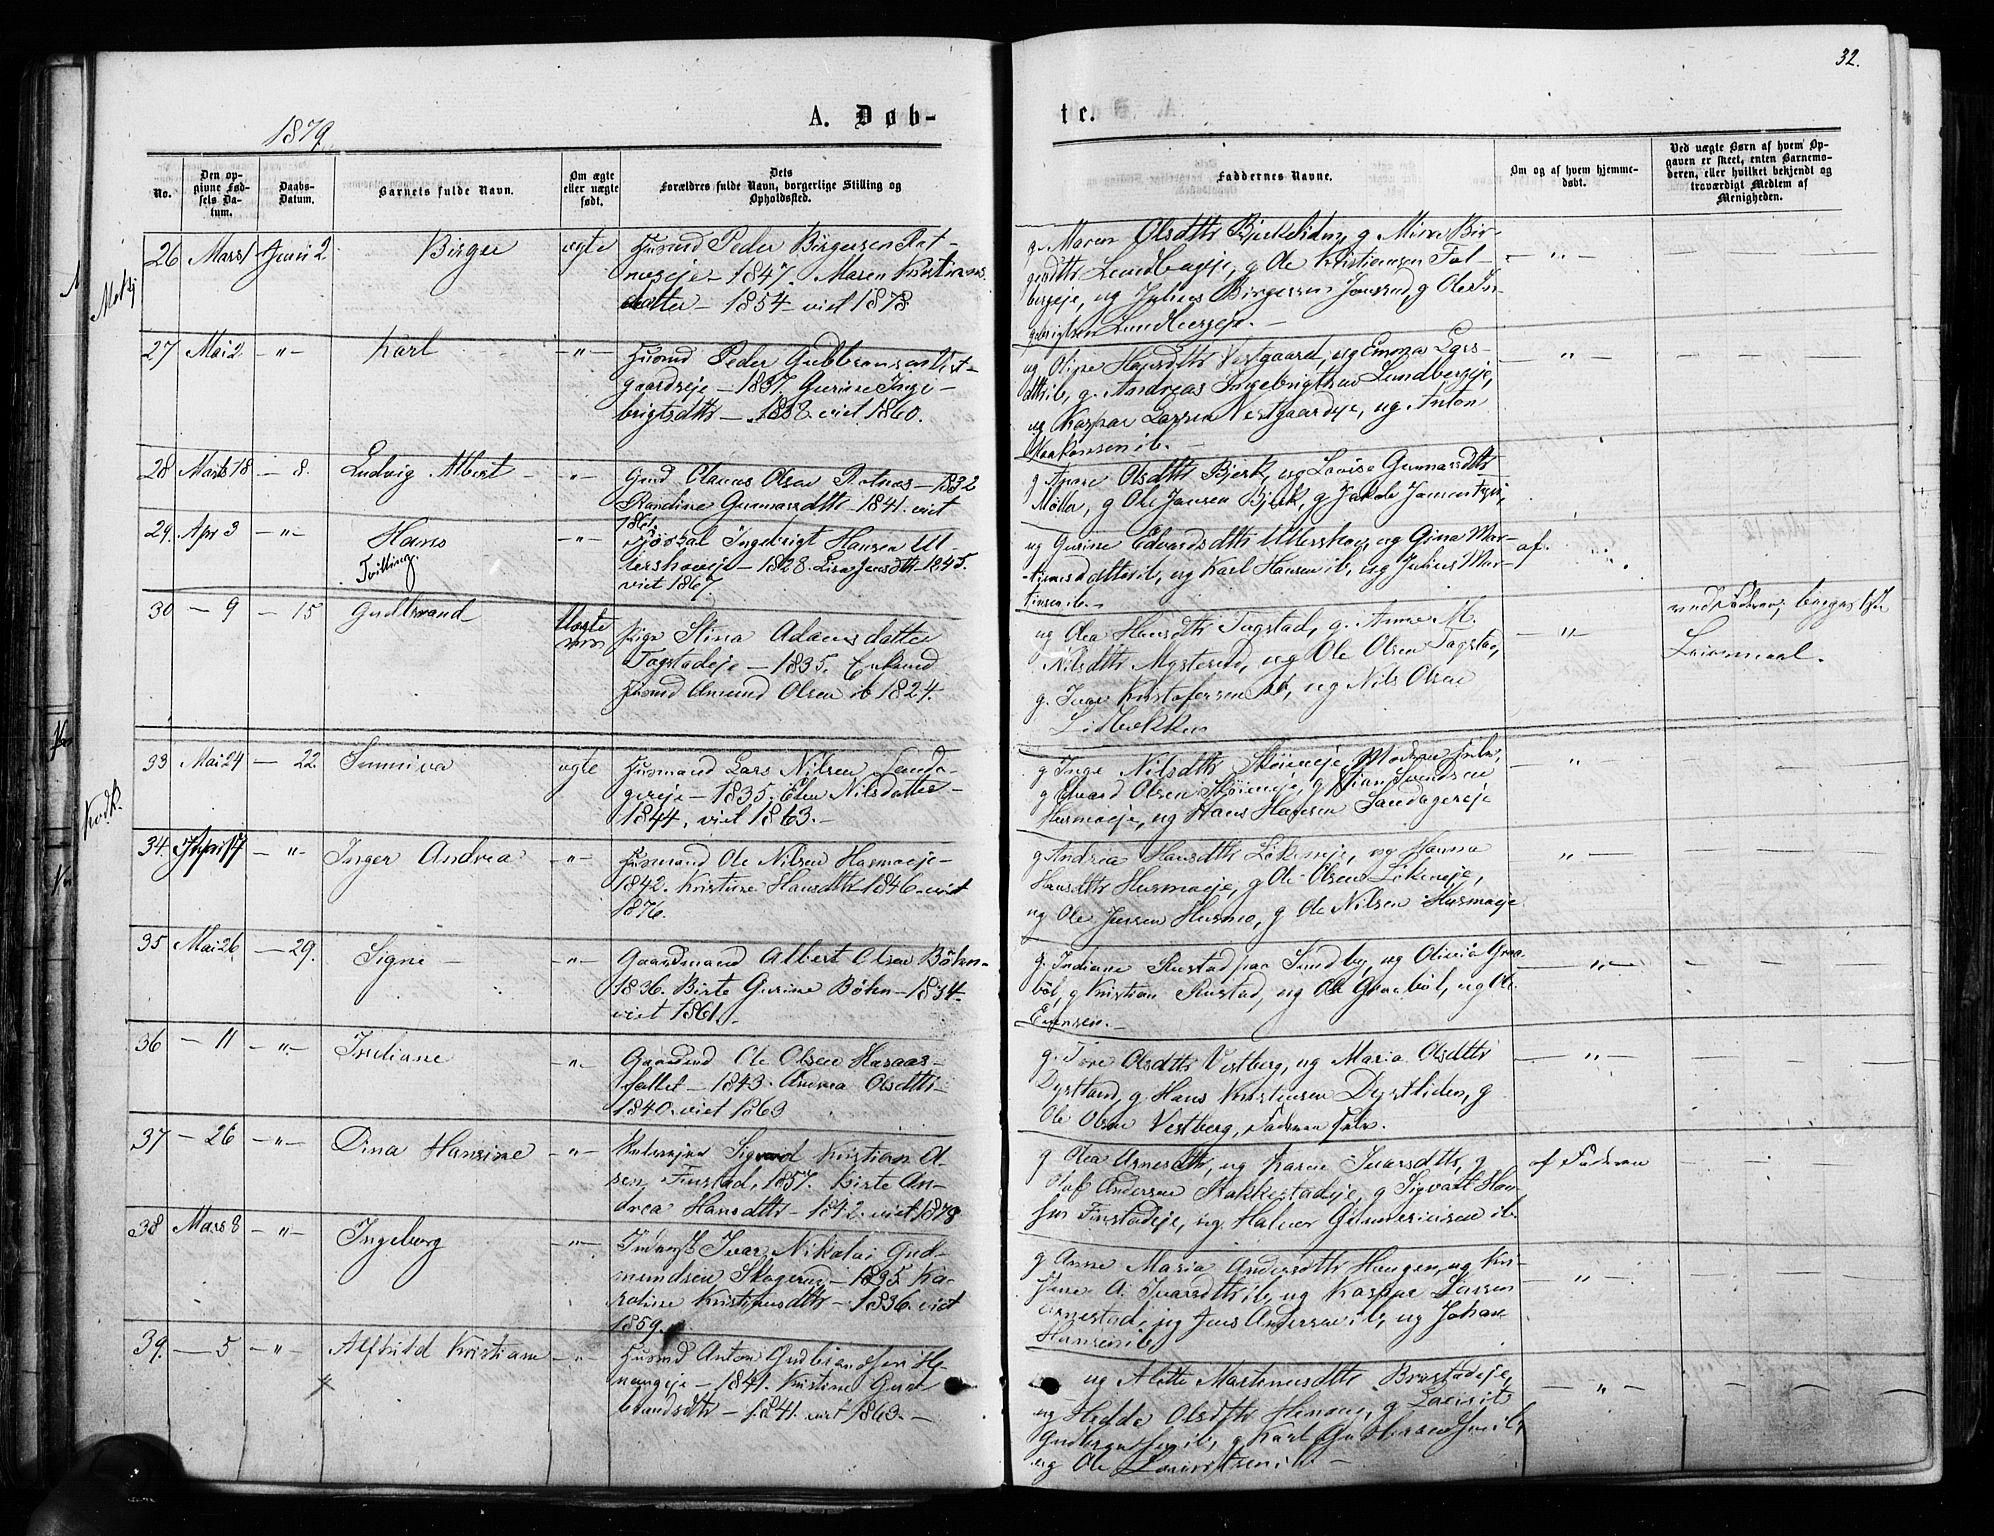 32.
1879
A. Døb-
te.
No.
Den op-
givne Fød-
sels Da-
tum.
Daabs-
Datum.
Barnets fulde Navn.
Om ægte
eller uægte
født.
Dets
Forældres fulde Navn, borgerlige Stilling og
Opholdssted.
Faddernes Navne.
Om og af hvem hjemme-
døbt.
Ved uægte Børn af hvem Op-
gaven er skeet, enten Barnemo-
deren, eller hvilket bekjendt og
troværdigt Medlem af
Menigheden.
26 Mars 1 Juni 2 Birger ægte
Husmd Peder Birgersen Rot-
næseje - 1847. Maren Kristians
datter - 1854 - viet 1878
g. Maren Olsdttr Bjerkeliden, g Mina Bir-
gersdttr Lundbageje, g Ole Kristiansen Fal-
bergeje, ug Julius Birgersen Jonsrud, g Ole In-
gebrigtsen Lundbergeje. -
27 Mai 2 - " - Karl - " -
Husmd Peder Gulbransen Vest-
gaardseje - 1837. Gurine Inge-
brigtsdttr - 1838. viet 1860.
ug Oline Hansdttr Vestgaard, ug Emma Lars-
dttr ib, g. Andreas Ingebrigtsen Lundbergeje,
ug Kaspar Larsen Vestgaardeje, ug Anton
Haakonsen ib. -
28 Marts 18 - 8. Ludvig Albert - " -
Gmd Olaves Olsen Rotnæs - 1832
Randine Gunnarsdttr - 1841. viet
1861.
g Olsdttr Bjerk, ug Lovise Gunnarsdttr
Møller, g Ole Jansen Bjerk, g Jakob Jansen
29. Apr 3 - " - Hans - " -
Tvilling.
Ingebrigt Hansen Ul-
lershoveje - 1828. Lisa Jensdttr - 1845.
viet 1867.
ug Gurine Edvardsdttr Ullershov, ug Gina Mar-
tinusdatter ib, ug Karl Hansen ib, ug Julius Mar-
tinsen ib. -
af.
30 - 9 - 15 Gudbrand Uægte
Pige Stina Adamsdatter
Fogstadeje - 1835. Enkemd
Husmd Amund Olsen ib 1824.
ug Olea Hansdttr Fogstad, g. Anne M.
Nilsdttr Mysterud, ug Ole Olsen Fogstad,
g. Ivar Kristofersen ib, ug Nils Olsen
Lidbekken
- " -
Leiermaal.
33 Mai 24 - 22. Sunniva ægte
Husmand Lars Nilsen Sanda-
gereje - 1835. Elen Nilsdatter -
1844, viet 1863. -
g Inge Nilsdttr Skøieneje, Moderen selv,
g Edvard Olsen Skøieneje, g Stian Svendsen
Husmoeje, ug Hans Hansen Sandagereje
34. April 17 - " - Inger Andrea - " -
Husmand Ole Nilsen Husmoeje -
1842. Kristine Hansdttr - 1846. viet
1876.
g Andrea Hansdttr Løkeneje, ug Hanna
Hansdttr Husmoeje, g Ole Olsen Løkeneje,
ug Ole Jensen Husmo, g Ole Nilsen Husmoeje
35 Mai 26 - 29. Signe - " -
Gaardmand Albert Olsen Bøhn -
1836. Birte Gurine Bøhn - 1834.
viet 1861. -
g. Indiane Rustad paa Sundby, ug Olivia Graa-
bøl, g Kristian Rustad, ug Ole Graabøl, ug Ole
Evensen. -
36 - 11 - " - Indiane - " -
Gaardmd Ole Olsen Haraas-
fallet - 1843. Andrea Olsdttr -
1840. viet 1863
g. Tore Olsdttr Vestberg, ug Maria Olsdttr
Dystland, g. Hans Kristensen Dystliden, g
Ole Olsen Vestberg, Faderen selv.
37 - 26 - " - Dina Hansine - " -
Sigvard Kristian Ol-
sen, Finstad, 1857. Birte An-
drea Hansdttr - 1842. viet 1878
g Olea Arnesdttr, ug Karen Ivarsdttr, g
Olaf Andersen Rakkestadeje, g Sigvatt Han-
sen Finstadeje, ug Halvor Gunnerinsen ib.
af Faderen
38 Mars 8 - " - Ingeborg - " -
Inderst Ivar Nikolai Gud-
mundsen Skogerud - 1835. Ka-
roline Kristiansdttr - 1836. viet
1859.
g Anne Maria Andersdttr Haugen, ug Kri-
stine A. Ivarsdttr ib, ug Kaspar Larsen
Arnestad, ug Jens Andersen ib, ug Johan
Hansen ib.
39. - 5 - " - Alfhild Kristiane - " -
Husmd Anton Gudbrandsen He-
nungeje - 1841. Kristine Gud
brandsdttr - 1841. viet 1863. -
ug Alette Martinusdttr Brustadeje,
ug Hedda Olsdttr Henung, g Lauritz
Gudbrandsen ib, g Karl Gu
ug Ole Lauritsen ib. -